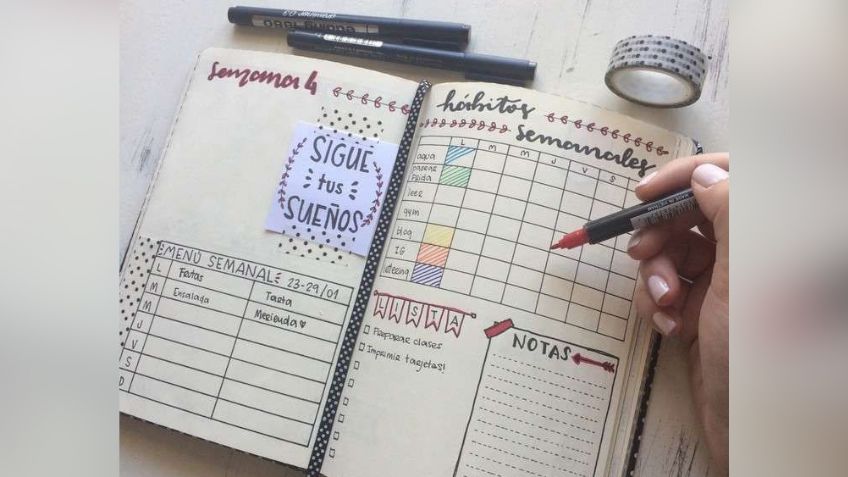 Semana 4
SIGUE
tus
SUEÑOS
MENÚ SEMANAL 23-29/01
L Frutas Tarta
M Ensalada Merienda
M
J
V
S
D
hábitos
semanales
L M M J V S
agua
pasear
Frida
leer
gym
blog
IG
LISTA
Preparar clases
Imprimir tarjetas!
NOTAS